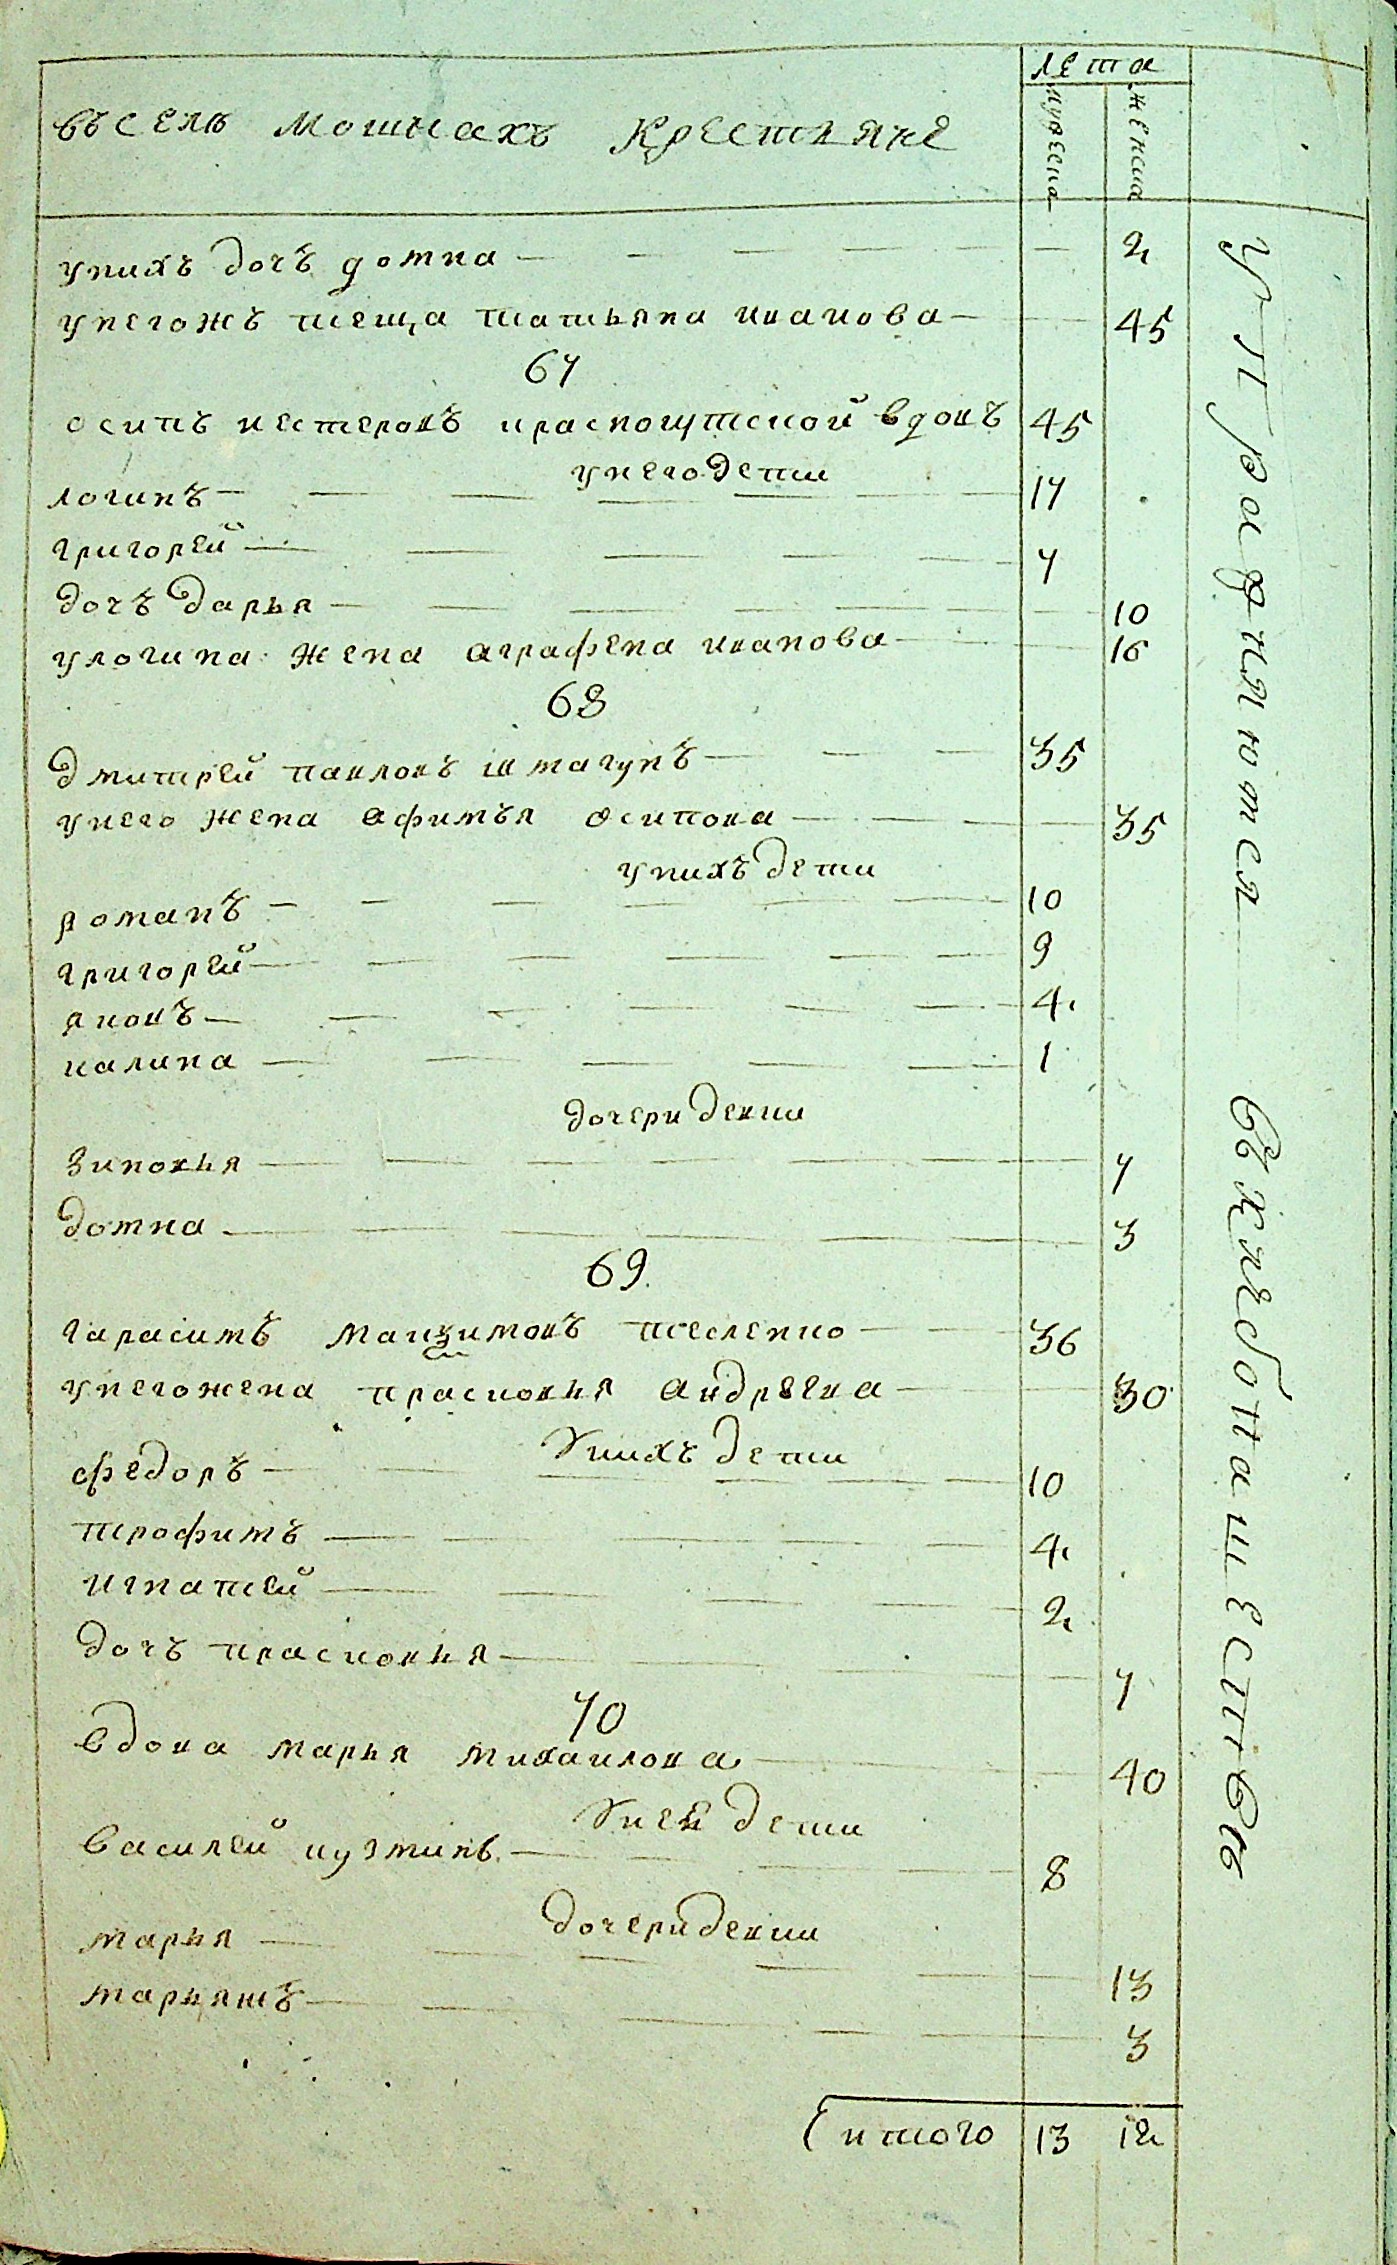 лета
въселѣ мошнахъ крестьяне
мужеска
женска
унихъ дочъ домна 2
унегожъ теща татьяна иванова 45
67
осипъ нестеровъ краснокутской вдовъ 45
унего дети
логинъ 17
григорей 7
дочъ дарья 10
улогина жена аграфена иванова 16
68
дмитрей павловъ 35
унего жена афимъя осипова 35
унихъ дети
романъ 10
григорей 9
яковъ 4
калина 1
дочери девки
зиновья 7
домна 3
69
гарасимъ макзимовъ тесленко 36
унегожена прасковья андрѣева 30
Унихъ дети
федоръ 10
трофимъ 4
игнатей 2
дочъ прасковья 7
70
вдова марья михаилова 40
Унеѣ дети
василей кузминъ 8
дочери девки
марья 13
марьяна 3
итого 13 12
упражняются
вхлебопашествѣ